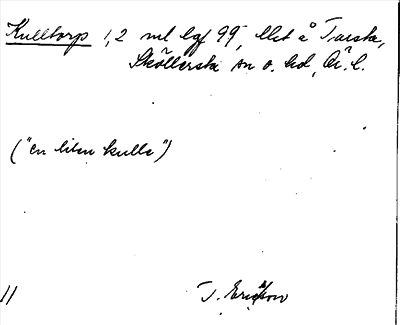 Kulltorp 1,2 ml lgf 99, llet å Torsta,
Sköllersta sn o. hd, Ör. l.
("en liten kulle")
11 T. Ericsson